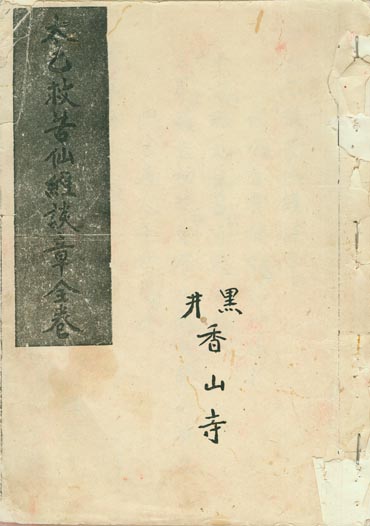 黒井
香山寺
太乙救苦仙經談章全卷